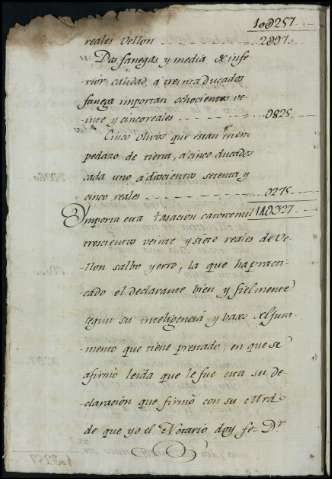 10&257
reales Vellon - - - - 2&97.
Dos fanegas y media de infe
rior calidad, a treinta ducados
fanega importan ochocientos ve
inte y cinco reales - - - - 0825.
Cinco olivos que estan en dho
pedazo de tierra, a cinco ducados
cada uno a doscientos setenta y
cinco reales - - - - 0275
Importa esta tasacion catorce mil
trescientos veinte y siete reales de Ve
llon salbo yerro, la que ha practi
cado el declarante bien y fielmente
segun su Inteligencia y baxo el Jura
mento que tiene prestado, en que se
afirmó leida que le fue esta su de
claracion que firmó con su Mrd
de que yo el Notario doy fe = Dr